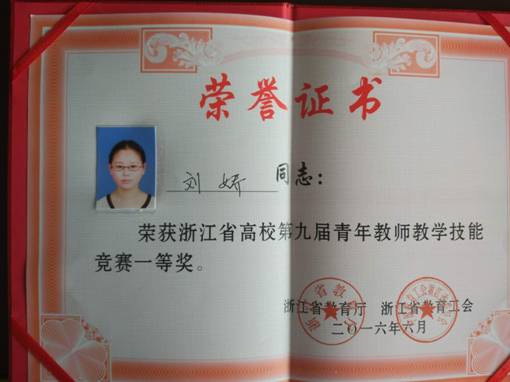 荣誉证书
刘娇 同志：
荣获浙江省高校第九届青年教师教学技能
竞赛一等奖。
浙江省教育厅 浙江省教育工会
二〇一六年六月